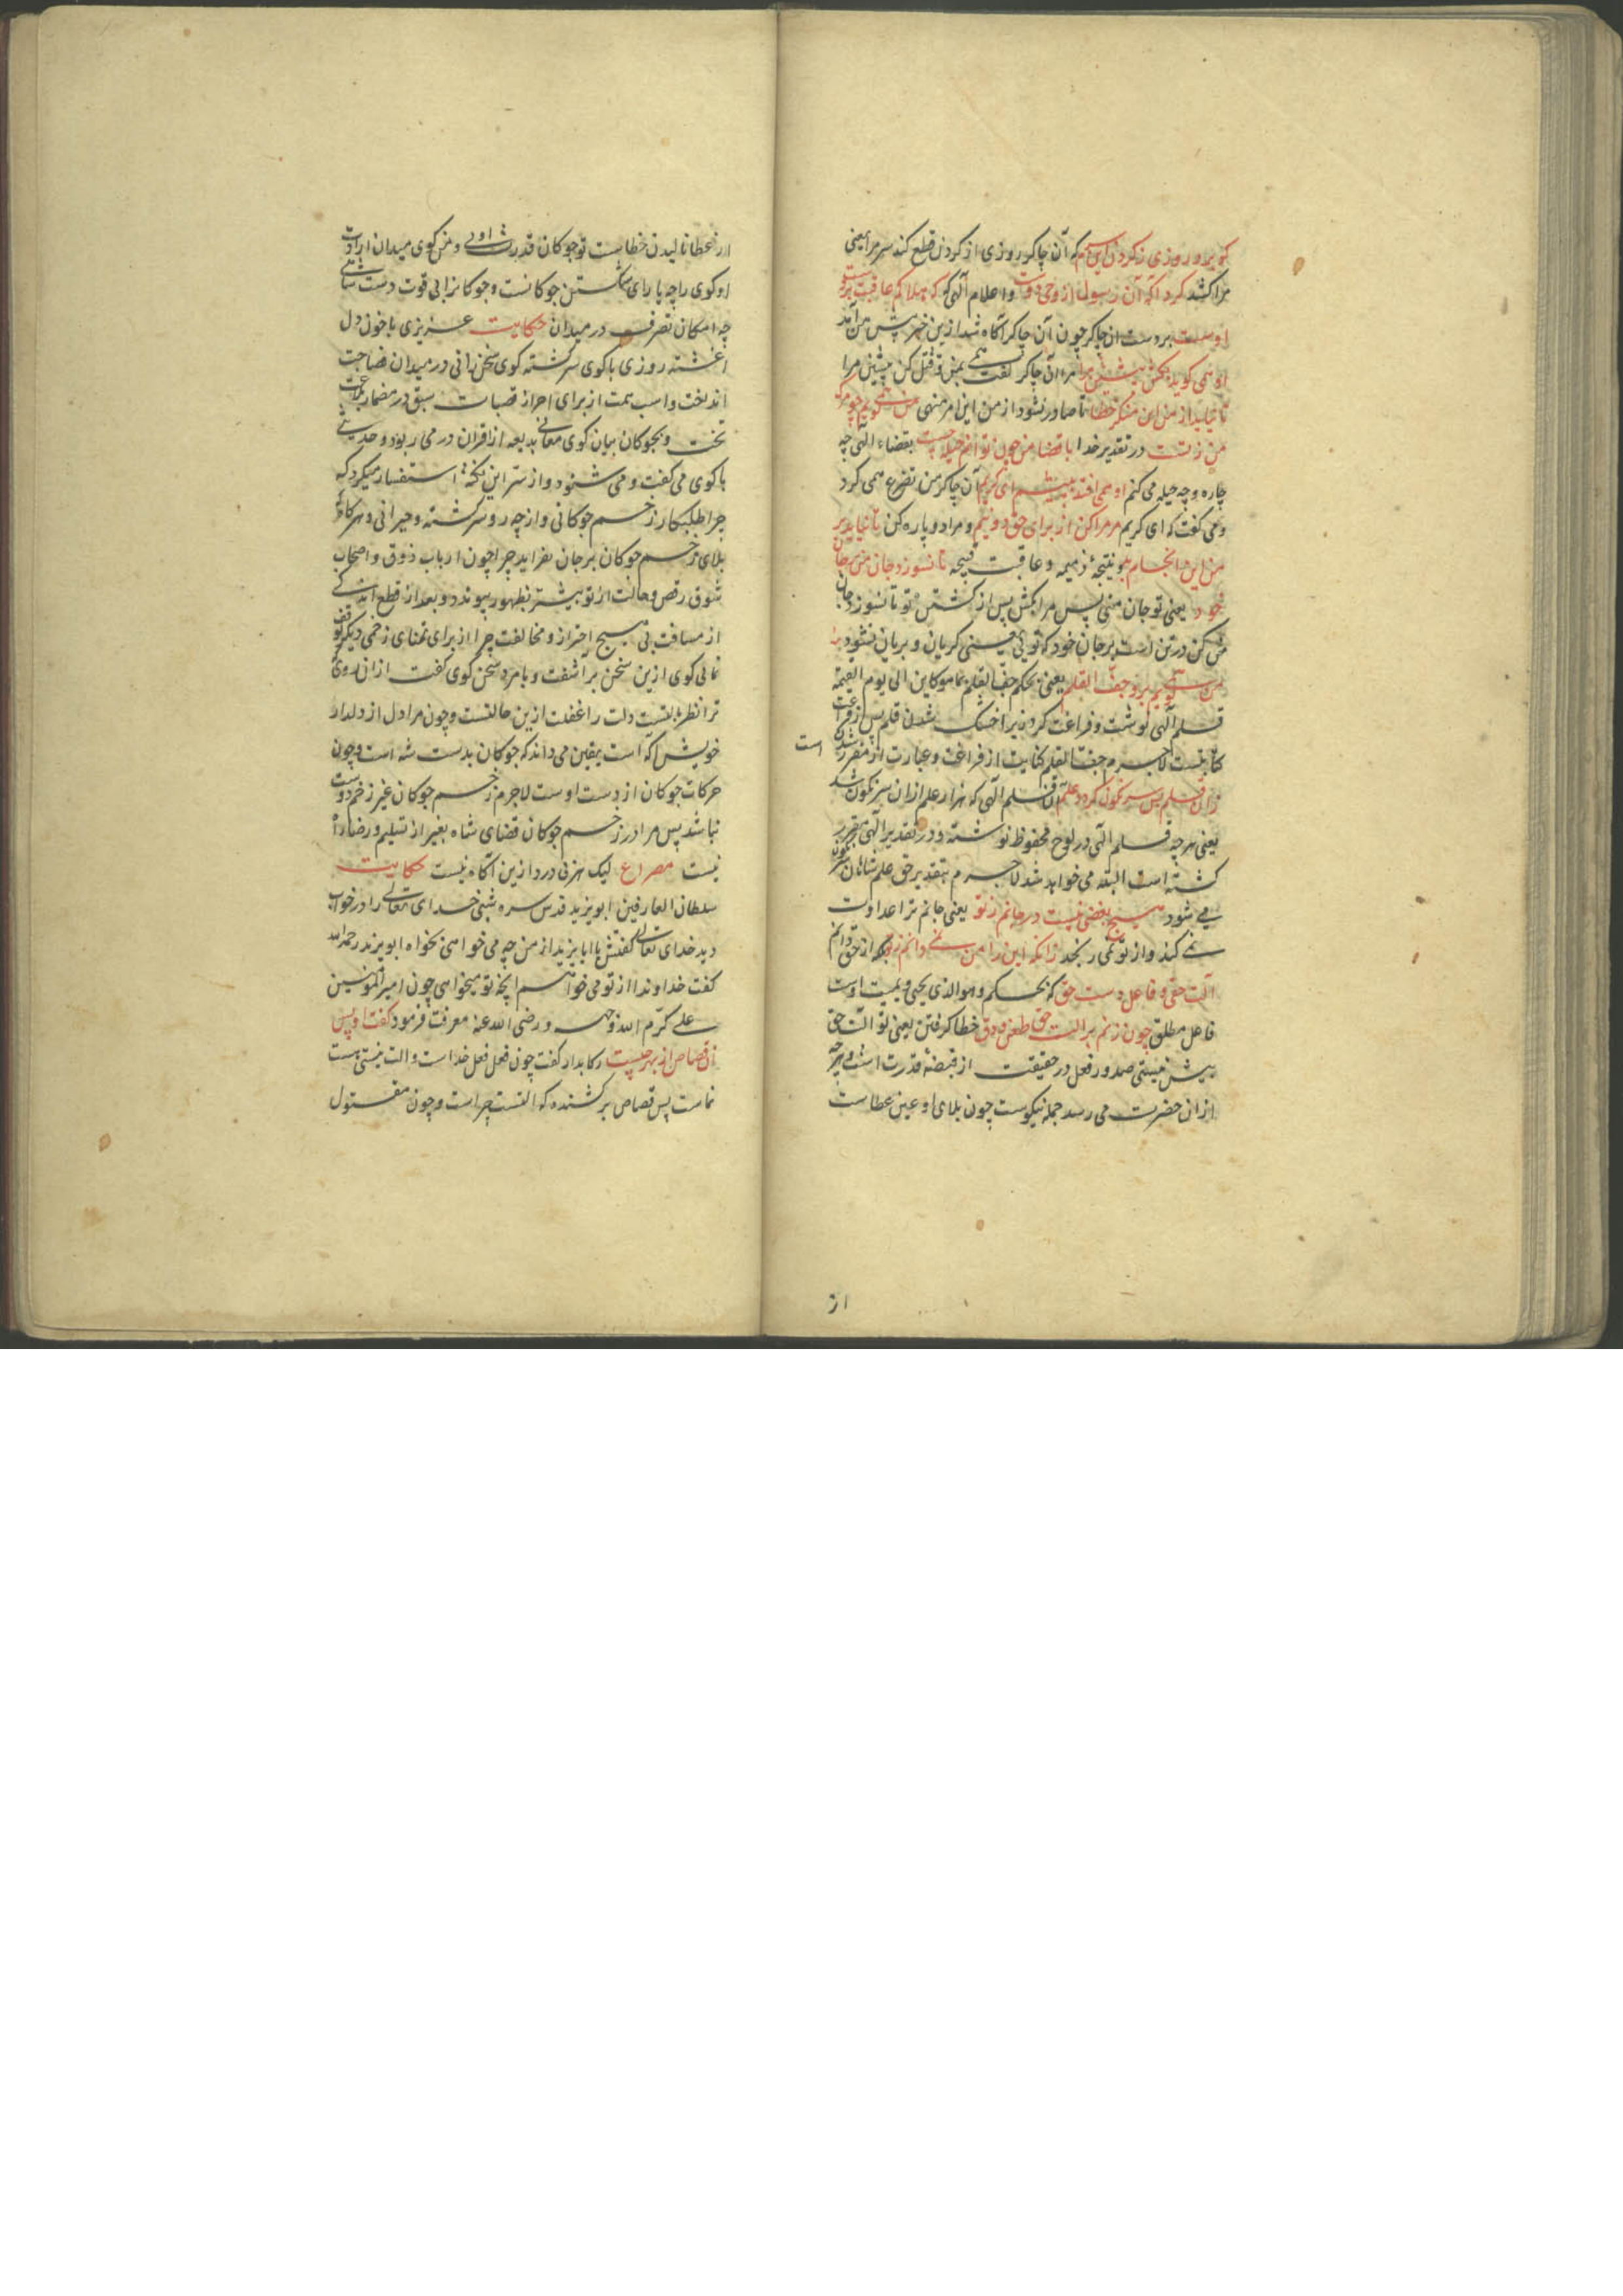 کو ببرد روزی ز گردن این سرم که آن چاکر روزی از گردن قطع کند سر مرا یعنی
مرا کشد کرد آگه آن رسول از وحی دوست و اعلام الهی که که هلاکم عاقبت بر دست
اوست بر دست آن چاکر چون آن چاکر آگاه شد ازین خبر پیش من آمد
او همی گوید بکش پیشین مرا مر آن چاکر گفت بمن و قتل کن پیشین مرا
تا نیاید از من این منکر خطا تا صادر نشود از من این امر منهی من همی گویم چو مرگ
من ز تست در تقدیر خدا با قضا من چون توانم حیله جست بقضاء الهی چه
چاره و چه حیله می کنم او همی افتد به پیشم ای کریم آن چاکر من تضرع همی کرد
و می گفت که ای کریم مر مرا کن از برای حق دو نیم و مرا دو پاره کن تا نیاید بر
من این انجام بد و نتیجهٔ ذمیمه و عاقبت قبیحه تا نسوزد جان من بر جان
خود یعنی تو جان منی پس مرا بکش پس از کشتن تو تا نسوزد جان
من که در تن است بر جان خود که تویی یعنی گریان و بریان نشود
من همی گویم برو جف القلم یعنی بحکم جف القلم بما هو کاین الی یوم القیمة
قلم الهی نوشت و فراغت کرد زیرا خشک شدن قلم پس از فراغت
کتابتست لاجرم جف القلم کنایت از فراغت و عبارت از مقرر شدن است
زان قلم بس سرنگون گردد علم آن قلم الهی که هزار علم ازان سرنگون شد
یعنی هر چه قلم الهی در لوح محفوظ نوشته و در تقدیر الهی مقرر
کشته است البته می خواهد شد لاجرم بتقدیر حق علم شاهان سرنگون
می شود هیچ بغضی نیست در جانم ز تو یعنی جانم ترا عداوت
نمی کند و از تو نمی رنجد زانکه این را من نمی دانم ز تو بلکه از حق دانم
آلت حقی و فاعل دست حق که بحکم و هو الذی یحیی و یمیت اوست
فاعل مطلق چون زنم بر آلت حق طعن و دق خطا گرفتن یعنی تو آلت حق
بیش نیستی صدور فعل در حقیقت از قبضهٔ قدرت است و هر چه
ازان حضرت می رسد جمله نیکوست چون بلای او عین عطاست
از
از عطا نالیدن خطاست تو چوکان قدرت اویی و من کوی میدان ارادت
او کوی را چه یارای شکستن چوکانست و چوکان را بی قوت دست شاهی
چه امکان تصرف در میدان حکایت عزیزی با خون دل
آغشته روزی با کوی سرکشته کوی سخن رانی در میدان فصاحت
انداخت و اسب همت از برای احراز قصبات سبق در مضمار بلاغت
تاخت و بچوکان بیان کوی معانی بدیعه از اقران در می ربود و حدیثی
با کوی می کفت و می شنود و از سر این نکته استفسار میکرد که
چرا طلبکار زخم چوکانی و از چه رو سرکشته و حیرانی و هر کاه
بلای زخم چوکان بر جان بفزاید چرا چون ارباب ذوق و اصحاب
شوق رقص و حالت از تو بیشتر بظهور پیوندد و بعد از قطع اندکی
از مسافت بی هیچ احتراز و مخالفت چرا از برای تمنای زخمی دیگر توقف
نمائی کوی ازین سخن بر آشفت و با مرد سخن کوی کفت از ان روی
ترا نظر بالتست دلت را غفلت ازین حالتست و چون مرا دل از دلدار
خویش آکه است بیقین می داند که چوکان بدست شه است و چون
حرکات چوکان از دست اوست لاجرم زخم چوکان غیر زخم دوست
نباشد پس مرا در زخم چوکان قضای شاه بغیر از تسلیم و رضا راه
نیست مصراع لیک هر بی درد ازین آکاه نیست حکایت
سلطان العارفین ابو یزید قدس سره شبی خدای تعالی را در خواب
دید خدای تعالی کفتش یا ابا یزید از من چه می خواهی بخواه ابو یزید رحمه الله
کفت خداوندا از تو می خواهم آنچه تو میخواهی چون امیر المؤمنین
علی کرم الله وجهه و رضی الله عنه معرفت فرمود کفت او پس
آن قصاص از بهر چیست رکابدار کفت چون فعل فعل خداست و آلت نیستی هست
نماست پس قصاص بر کشنده که آلتست چراست و چون مقتول